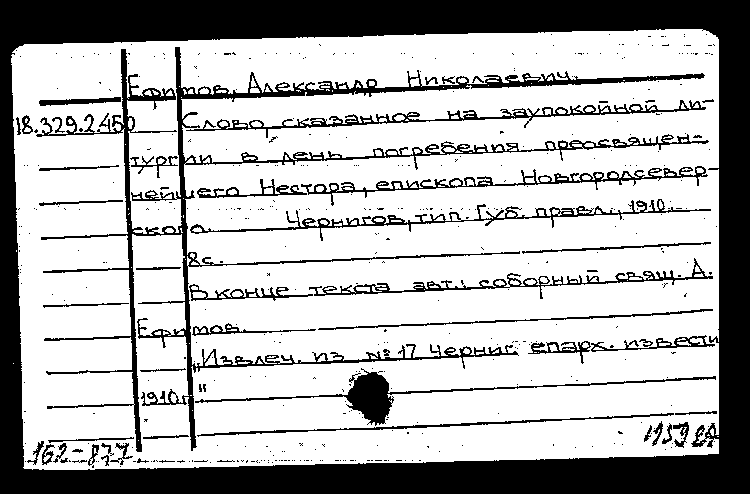 Ефимов, Александр Николаевич.
18.329.2.450 Слово, сказанное на заупокойной ли-
тургии в день погребения преосвящен-
нейшего Нестора, епископа Новгородсевер-
ского. Чернигов, тип. Губ. правл., 1910.
8с.
В конце текста авт.: соборный свящ. А.
Ефимов.
„Извлеч. из №17 Черниг. епарх. извести
1910г."
162-877. 1959